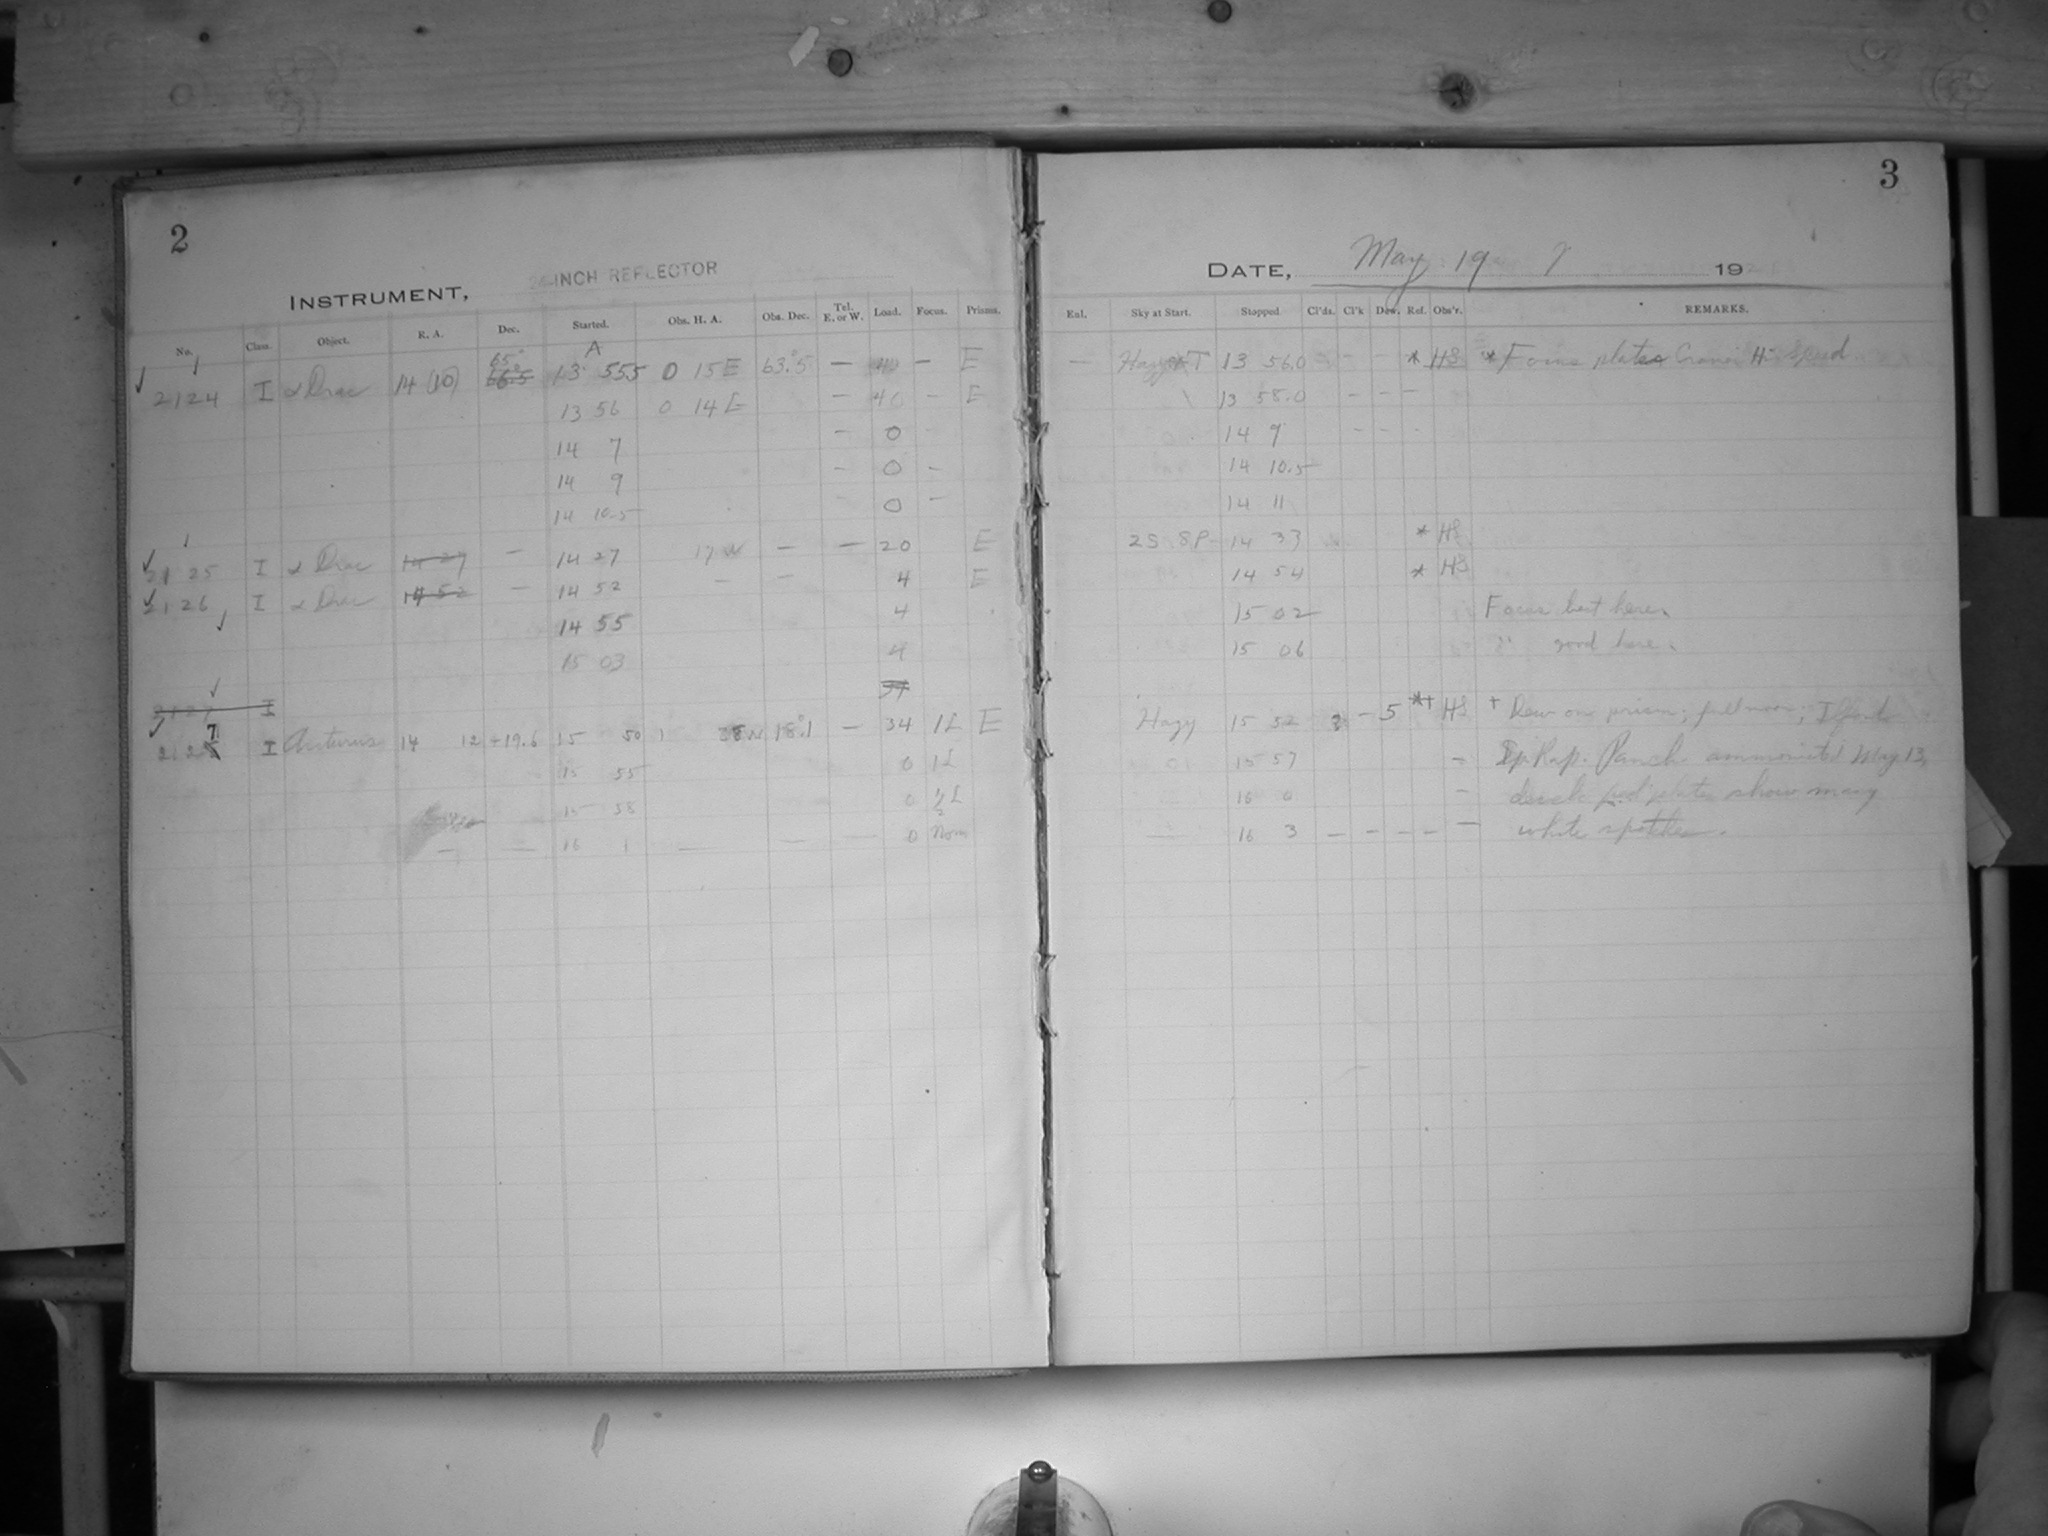 2
INSTRUMENT, 24-INCH REFLECTOR
No. Class. Object. R. A. Dec. Started. Obs. H. A. Obs. Dec. Tel. E. or W. Load. Focus. Prisms.
2124 I α Drac 14 (10) 65° 13 55.5 0 15 E 63.°5 — 40 — E
13 56 0 14 E — 40 — E
14 7 — 0 -
14 9 - 0 -
14 10.5 0 -
2125 I α Drac 14 27 — 14 27 17 W — — 20 E
2126 I α Drac 14 52 — 14 52 - - 4 E
14 55 4
15 03 4
2127 I
2127 I Arcturus 14 12 +19.6 15 50 1 W 18.°1 — 34 1L E
15 55 0 1L
15 58 0 ½L
— — 16 1 — — — 0 Nom
3
DATE, May 19 19
Enl. Sky at Start. Stopped Cl'ds. Cl'k Dew. Ref. Obs'r. REMARKS.
— Hazy T 13 56.0 - - * HS * Focus plates Cramer Hi Speed
13 58.0 - - -
14 9 - - -
14 10.5
14 11
2S 8P 14 33 * HS
14 54 * HS
15 02 Focus best here.
15 06 " good here.
Hazy 15 52 - 5 *+ HS + Dew on prism; full moon;
15 57 = Rap. Panch. ammoniated May 13,
16 0 - plates show many
— 16 3 - - - - - white spots.